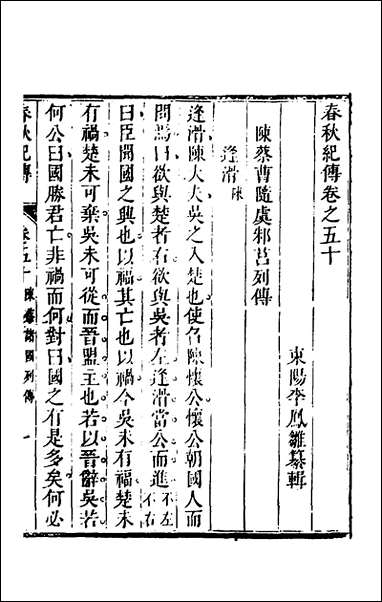 春秋紀傳卷之五十
東陽李鳳雛纂輯
陳蔡曹隨虞邾莒列傳
逢滑 陳
逢滑陳大夫吳之入楚也使召陳懷公懷公朝國人而
問焉曰欲與楚者右欲與吳者左逢滑當公而進 不左不右
曰臣聞國之興也以福其亡也以禍今吳未有福楚未
有禍楚未可棄吳未可從而晉盟主也若以晉辭吳若
何公曰國勝君亡非禍而何對曰國之有是多矣何必
春秋紀傳 卷五十 陳蔡諸國列傳 一